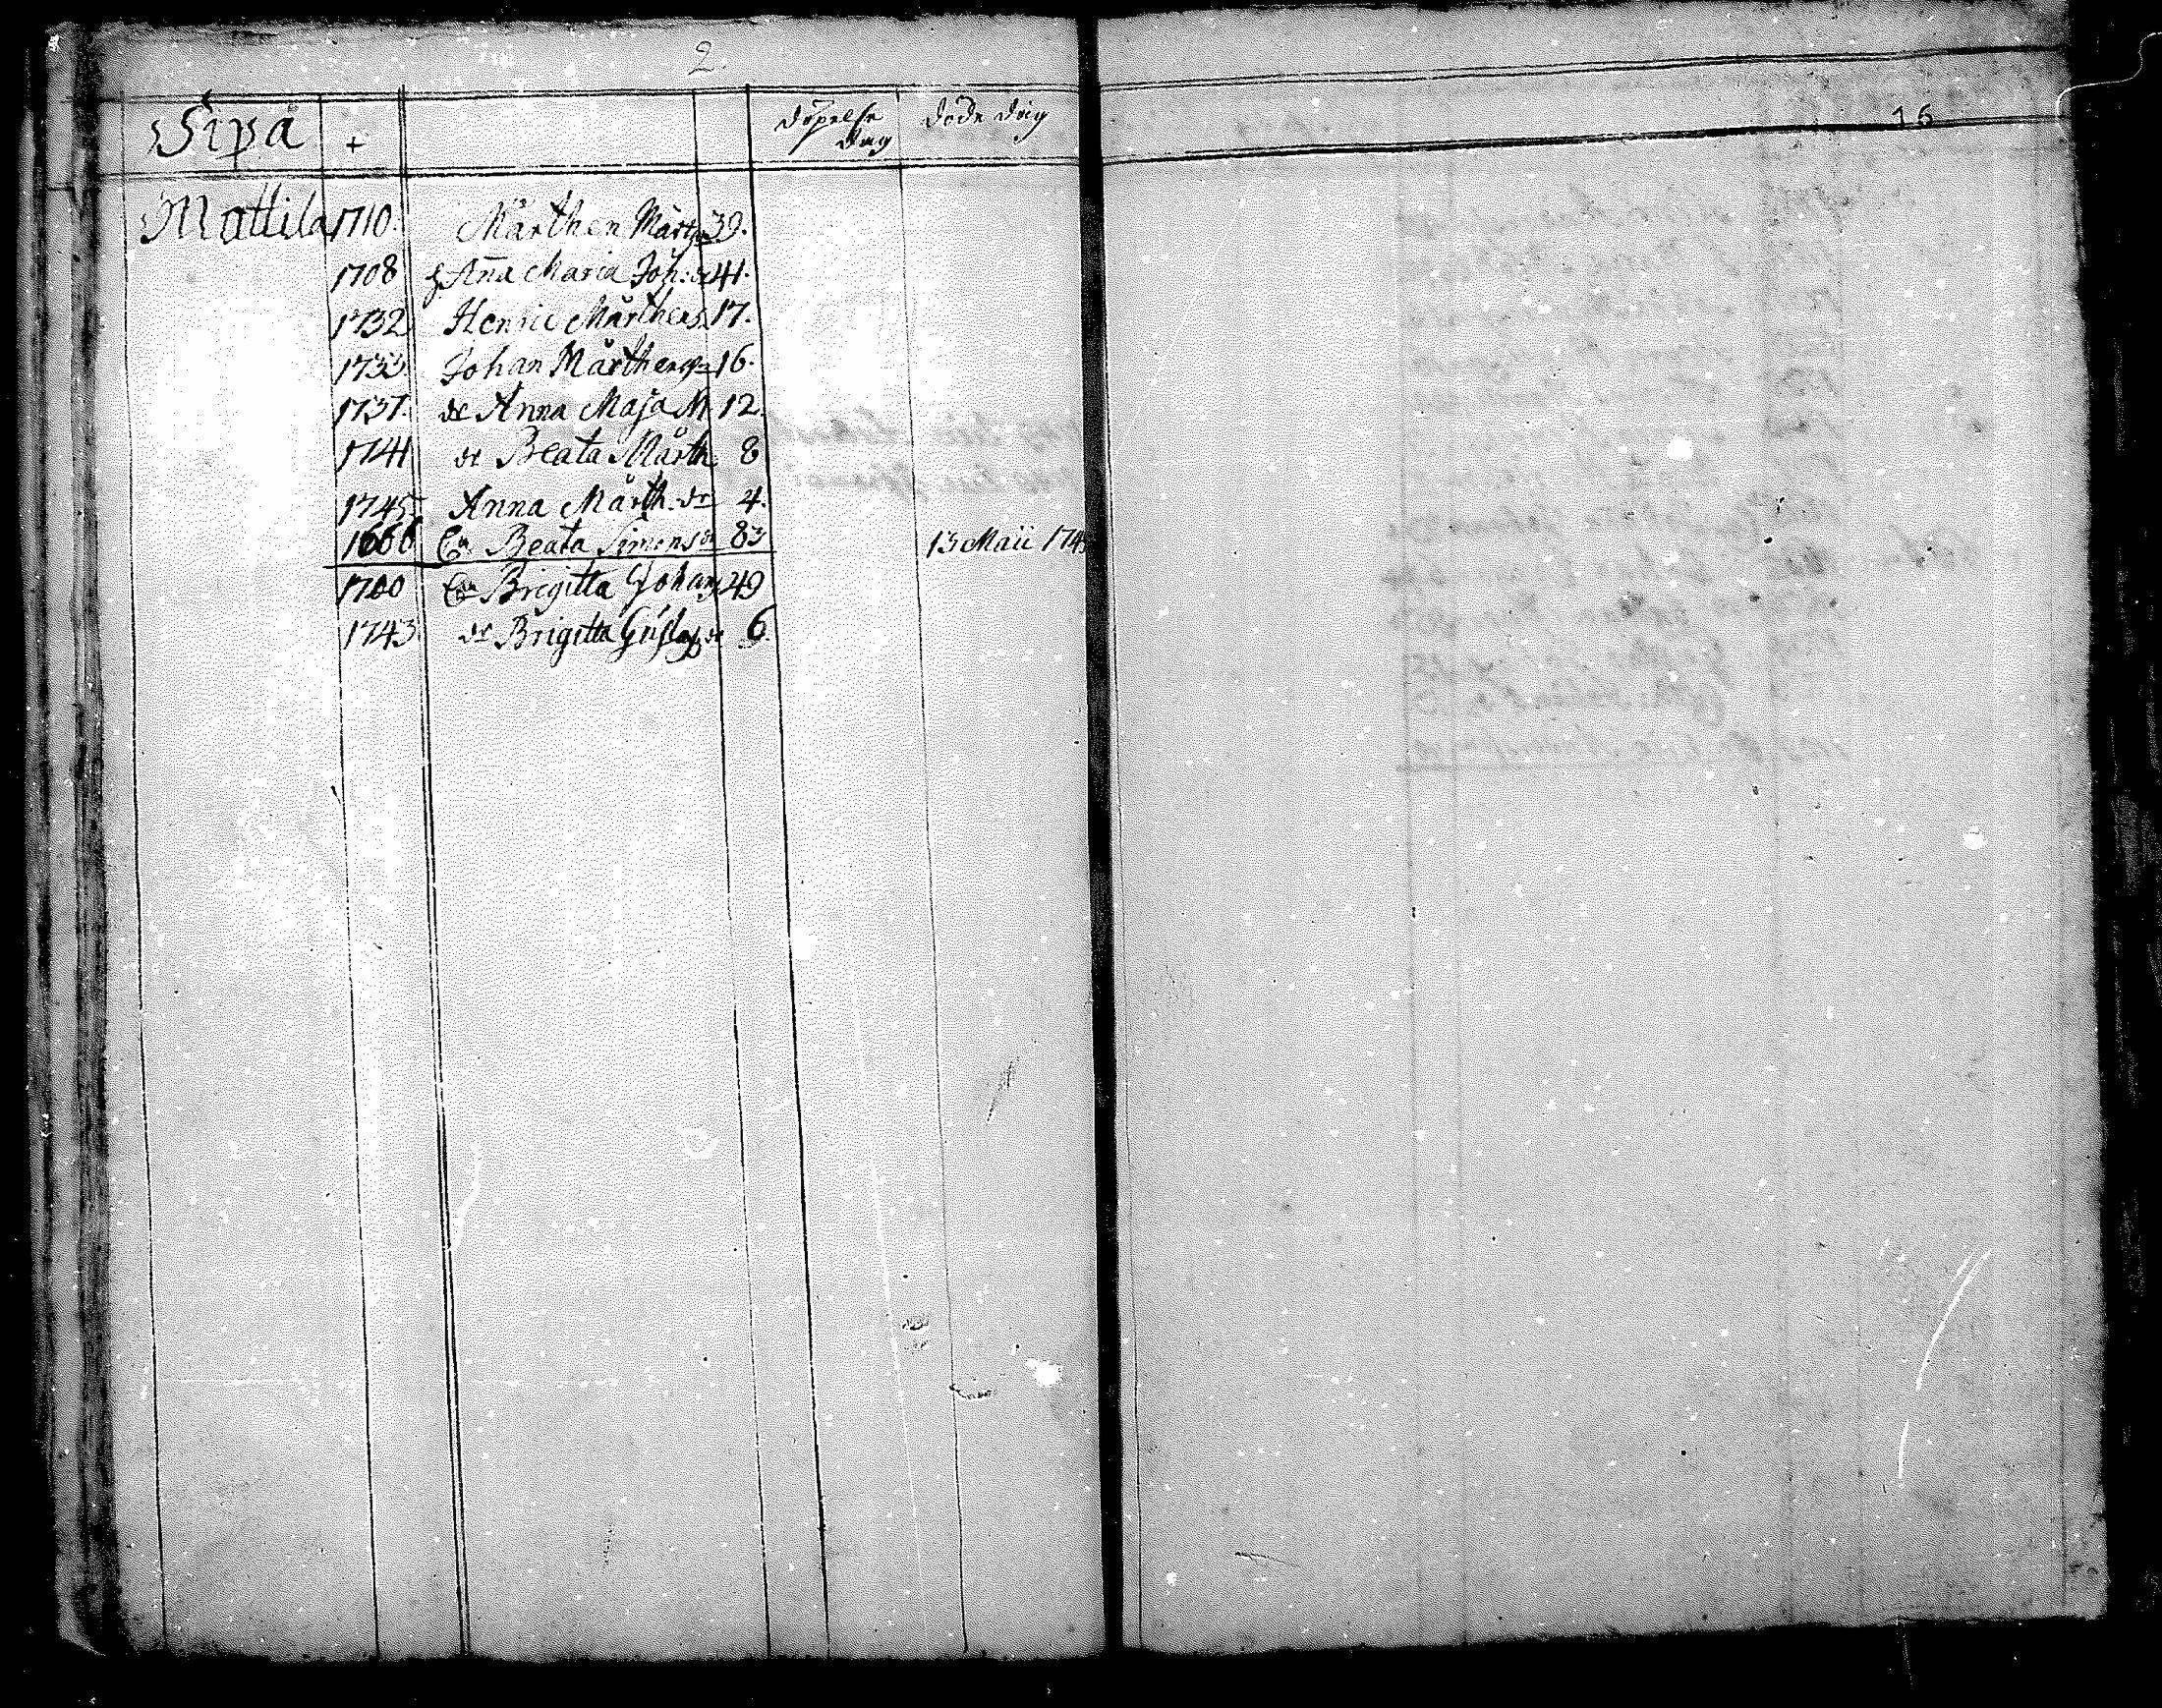 2.
Sipå + Döpelse dag Döde dag
16
Mattila 1710. Mårthen Mårts 39.
1708 h Aña Maria Joh: dr 41.
1732 Henric Mårthens. 17.
1733 Johan Mårthens 16.
1737. dr Anna Maja M 12.
1741 dr Beata Mårth 8
1745 Anna Mårth. dr 4.
1666 Ea Beata Simons dr 83 13 Maii 1749
1700 Ea Brigitta Johans 49
1743 dr Brigitta Gustafs dr 6.